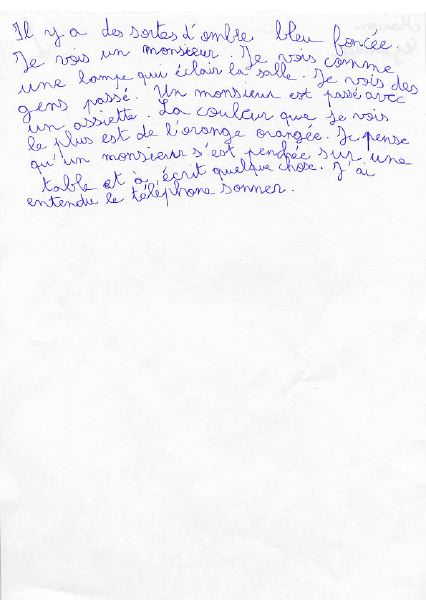 Il y a des sortes d'ombre bleu foncée.
Je vois un monsieur. Je vois comme
une lampe qui éclair la salle. Je vois des
gens passé. Un monsieur est passé avec
un assiette. La couleur que je vois
le plus est de l'orange orangée. Je pense
qu'un monsieur s'est penchée sur une
table et à écrit quelque chose. J'ai
entendu le téléphone sonner.